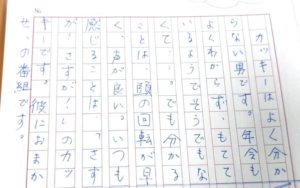 カッキーはよく分か
らない男です。年令も
よくわからず、もてて
いるようでそうでもな
く…。でも分かる
ことは頭の回転が早
く、声が良い。いつも
感じることは、「さす
が!さすが!」のカッ
キーです。彼におまか
せ、の番組です。